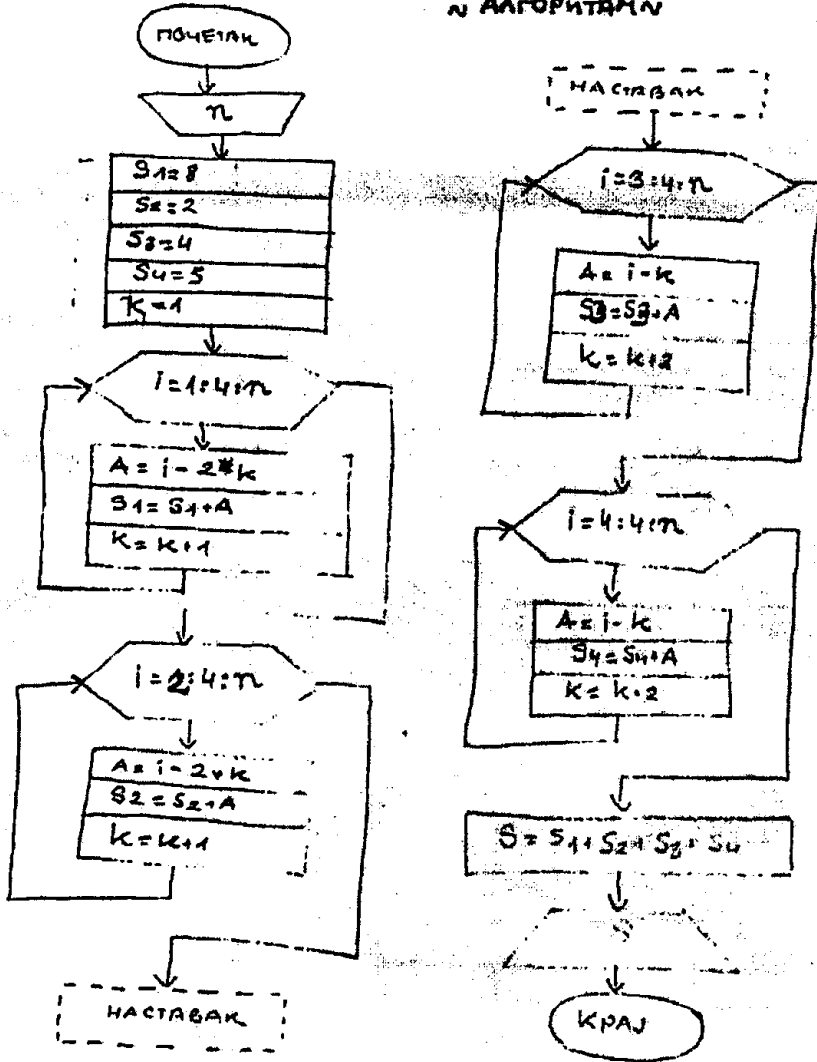 ~ АЛГОРИТАМ ~
ПОЧЕТАК
n
S1=8
S2=2
S3=4
S4=5
K=1
i=1:4:n
A = i - 2*k
S1 = S1+A
K = K+1
i=2:4:n
A = i - 2*k
S2 = S2+A
K = K+1
НАСТАВАК
НАСТАВАК
i=3:4:n
A = i - k
S3=S3+A
K = K+2
i=4:4:n
A = i - k
S4=S4+A
K = K+2
S = S1+S2+S3+S4
КРАЈ